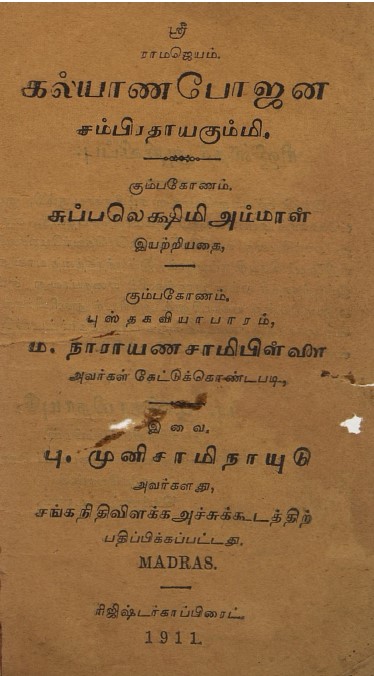 ஸ்ரீ
ராமஜெயம்.
கல்யாணபோஜன
சம்பிரதாயகும்மி.
கும்பகோணம்.
சுப்பலெக்ஷிமிஅம்மாள்
இயற்றியதை,
கும்பகோணம்.
புஸ்தகவியாபாரம்,
ம. நாராயணசாமிபிள்ளை
அவர்கள் கேட்டுக்கொண்டபடி,
இவை.
பு. முனிசாமிநாயுடு
அவர்களது,
சங்கநிதிவிளக்கஅச்சுக்கூடத்திற்
பதிப்பிக்கப்பட்டது.
MADRAS.
ரிஜிஷ்டர்காப்பிரைட்.
1911.